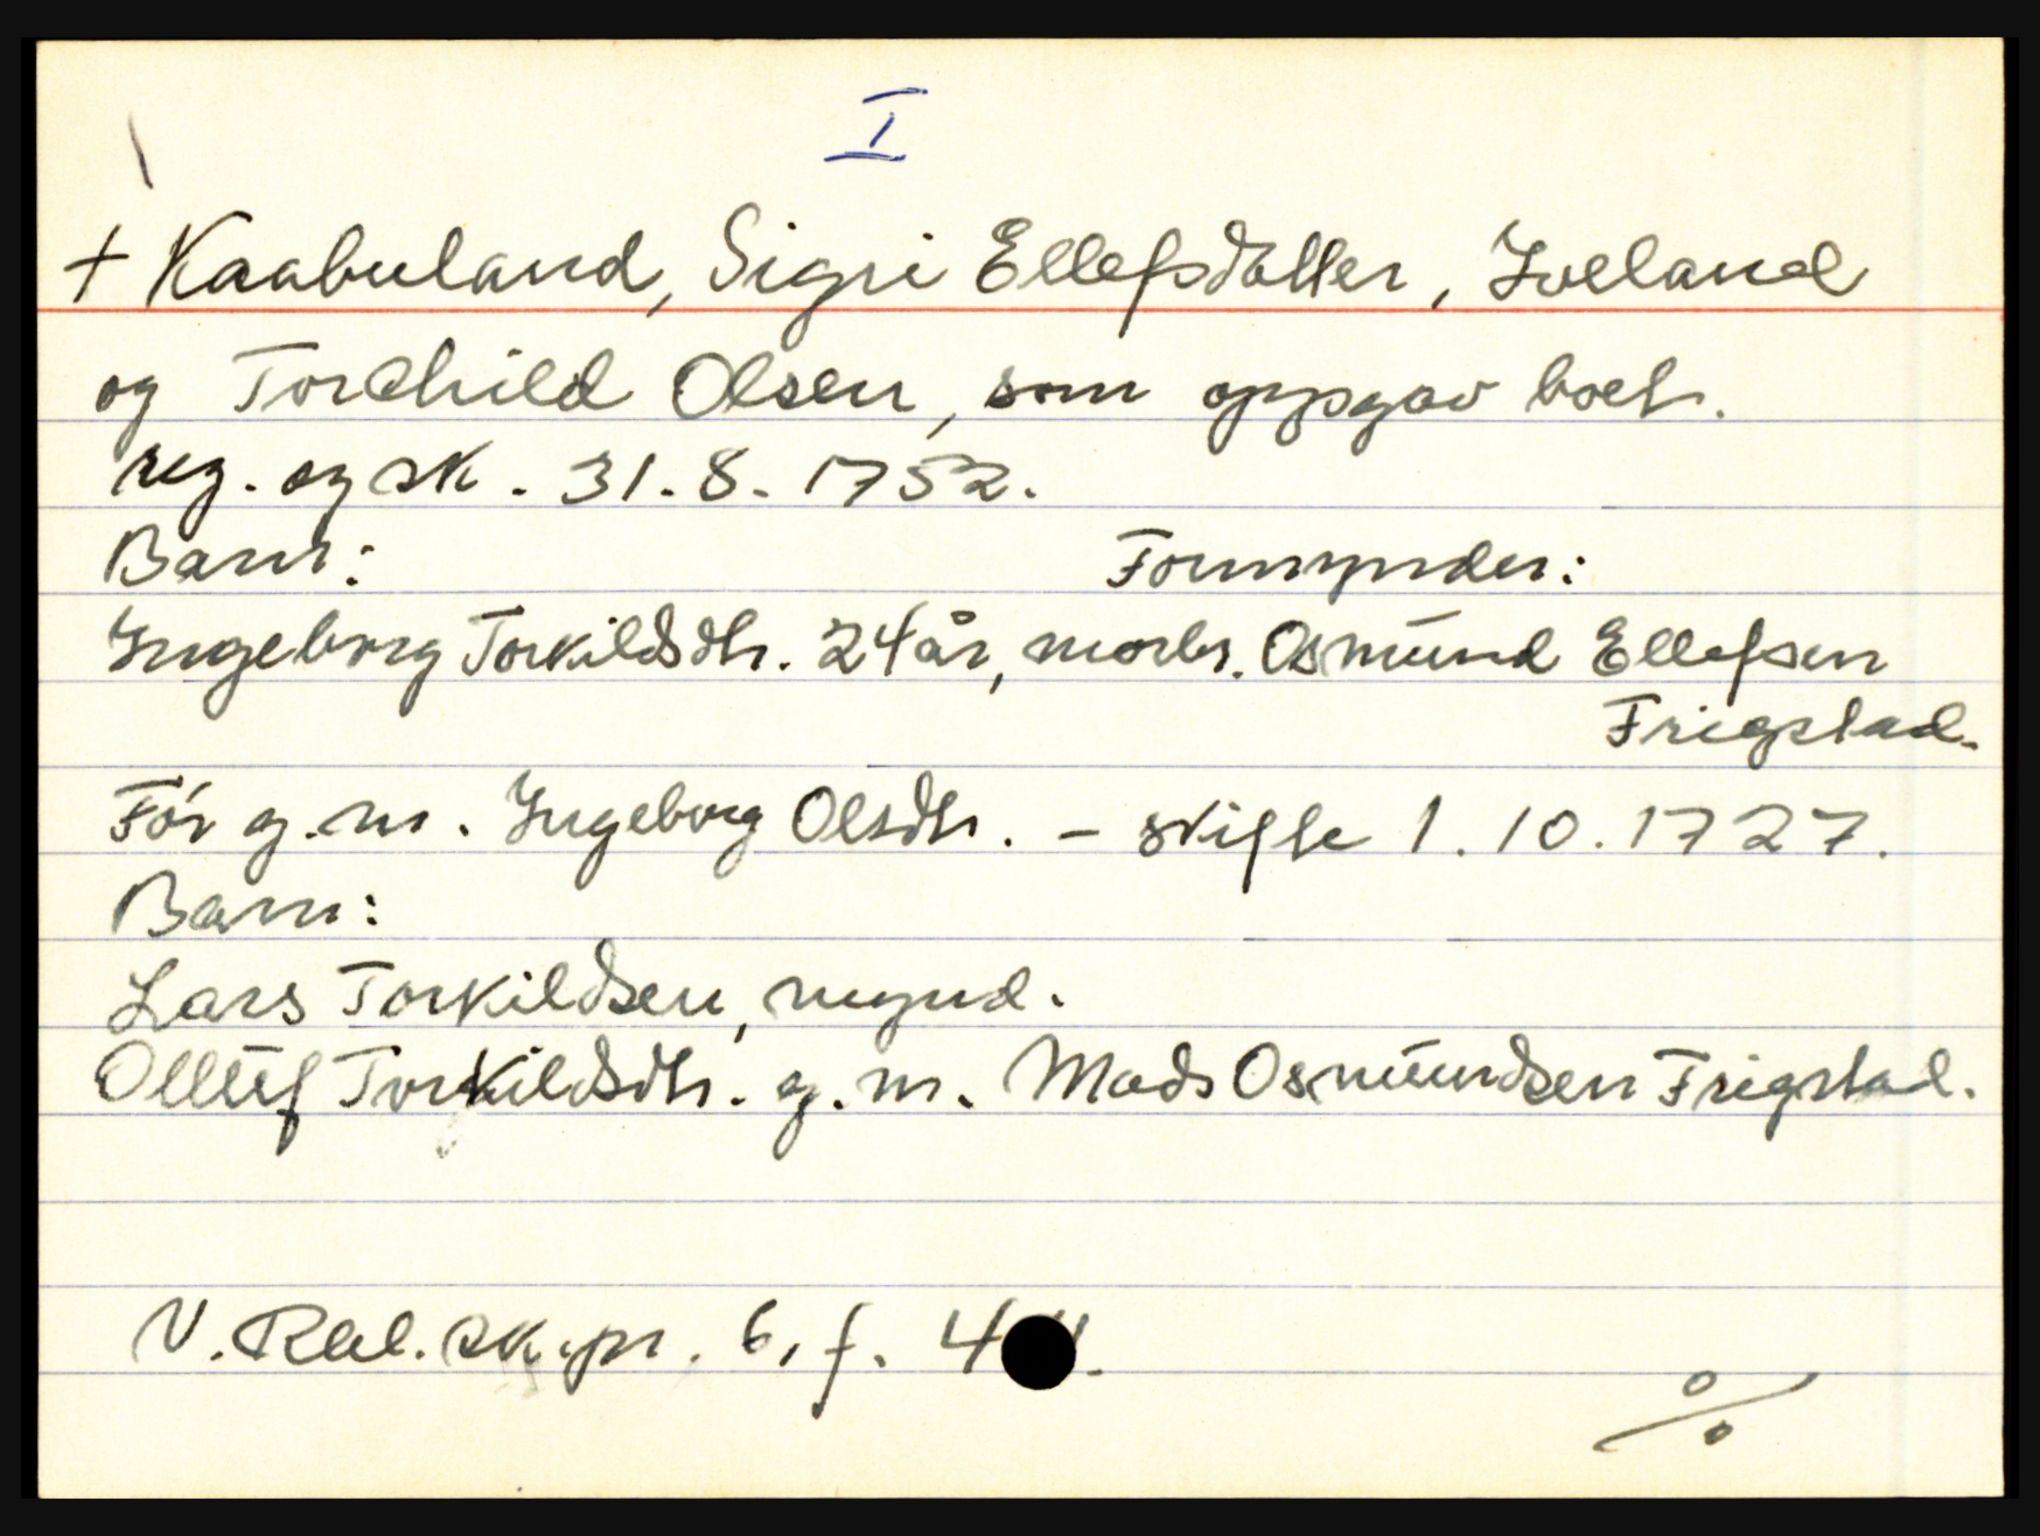 I
+ Kaabuland, Sigri Ellefsdatter, Iveland
og Torchild Olsen, som oppgav boet.
reg. og sk. 31.8.1752.
Barn: Formynder:
Ingeborg Torkildsdtr. 24 år, morbr. Osmund Ellefsen
Frigstad.
Før g.m. Ingeborg Olsdtr. - skifte 1.10.1727.
Barn:
Lars Torkildsen, mynd.
Olluf Torkildsdtr. g.m. Mads Osmundsen Frigstad.
V. Rbl. sk.pr. 6, f. 4
%